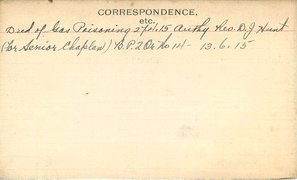 CORRESPONDENCE,
etc.
Died of Gas Poisoning 27.5.15 Authy Rev. D.J. Hunt
(for Senior Chaplain) B.P. 2 Di No 14 - 13.6.15